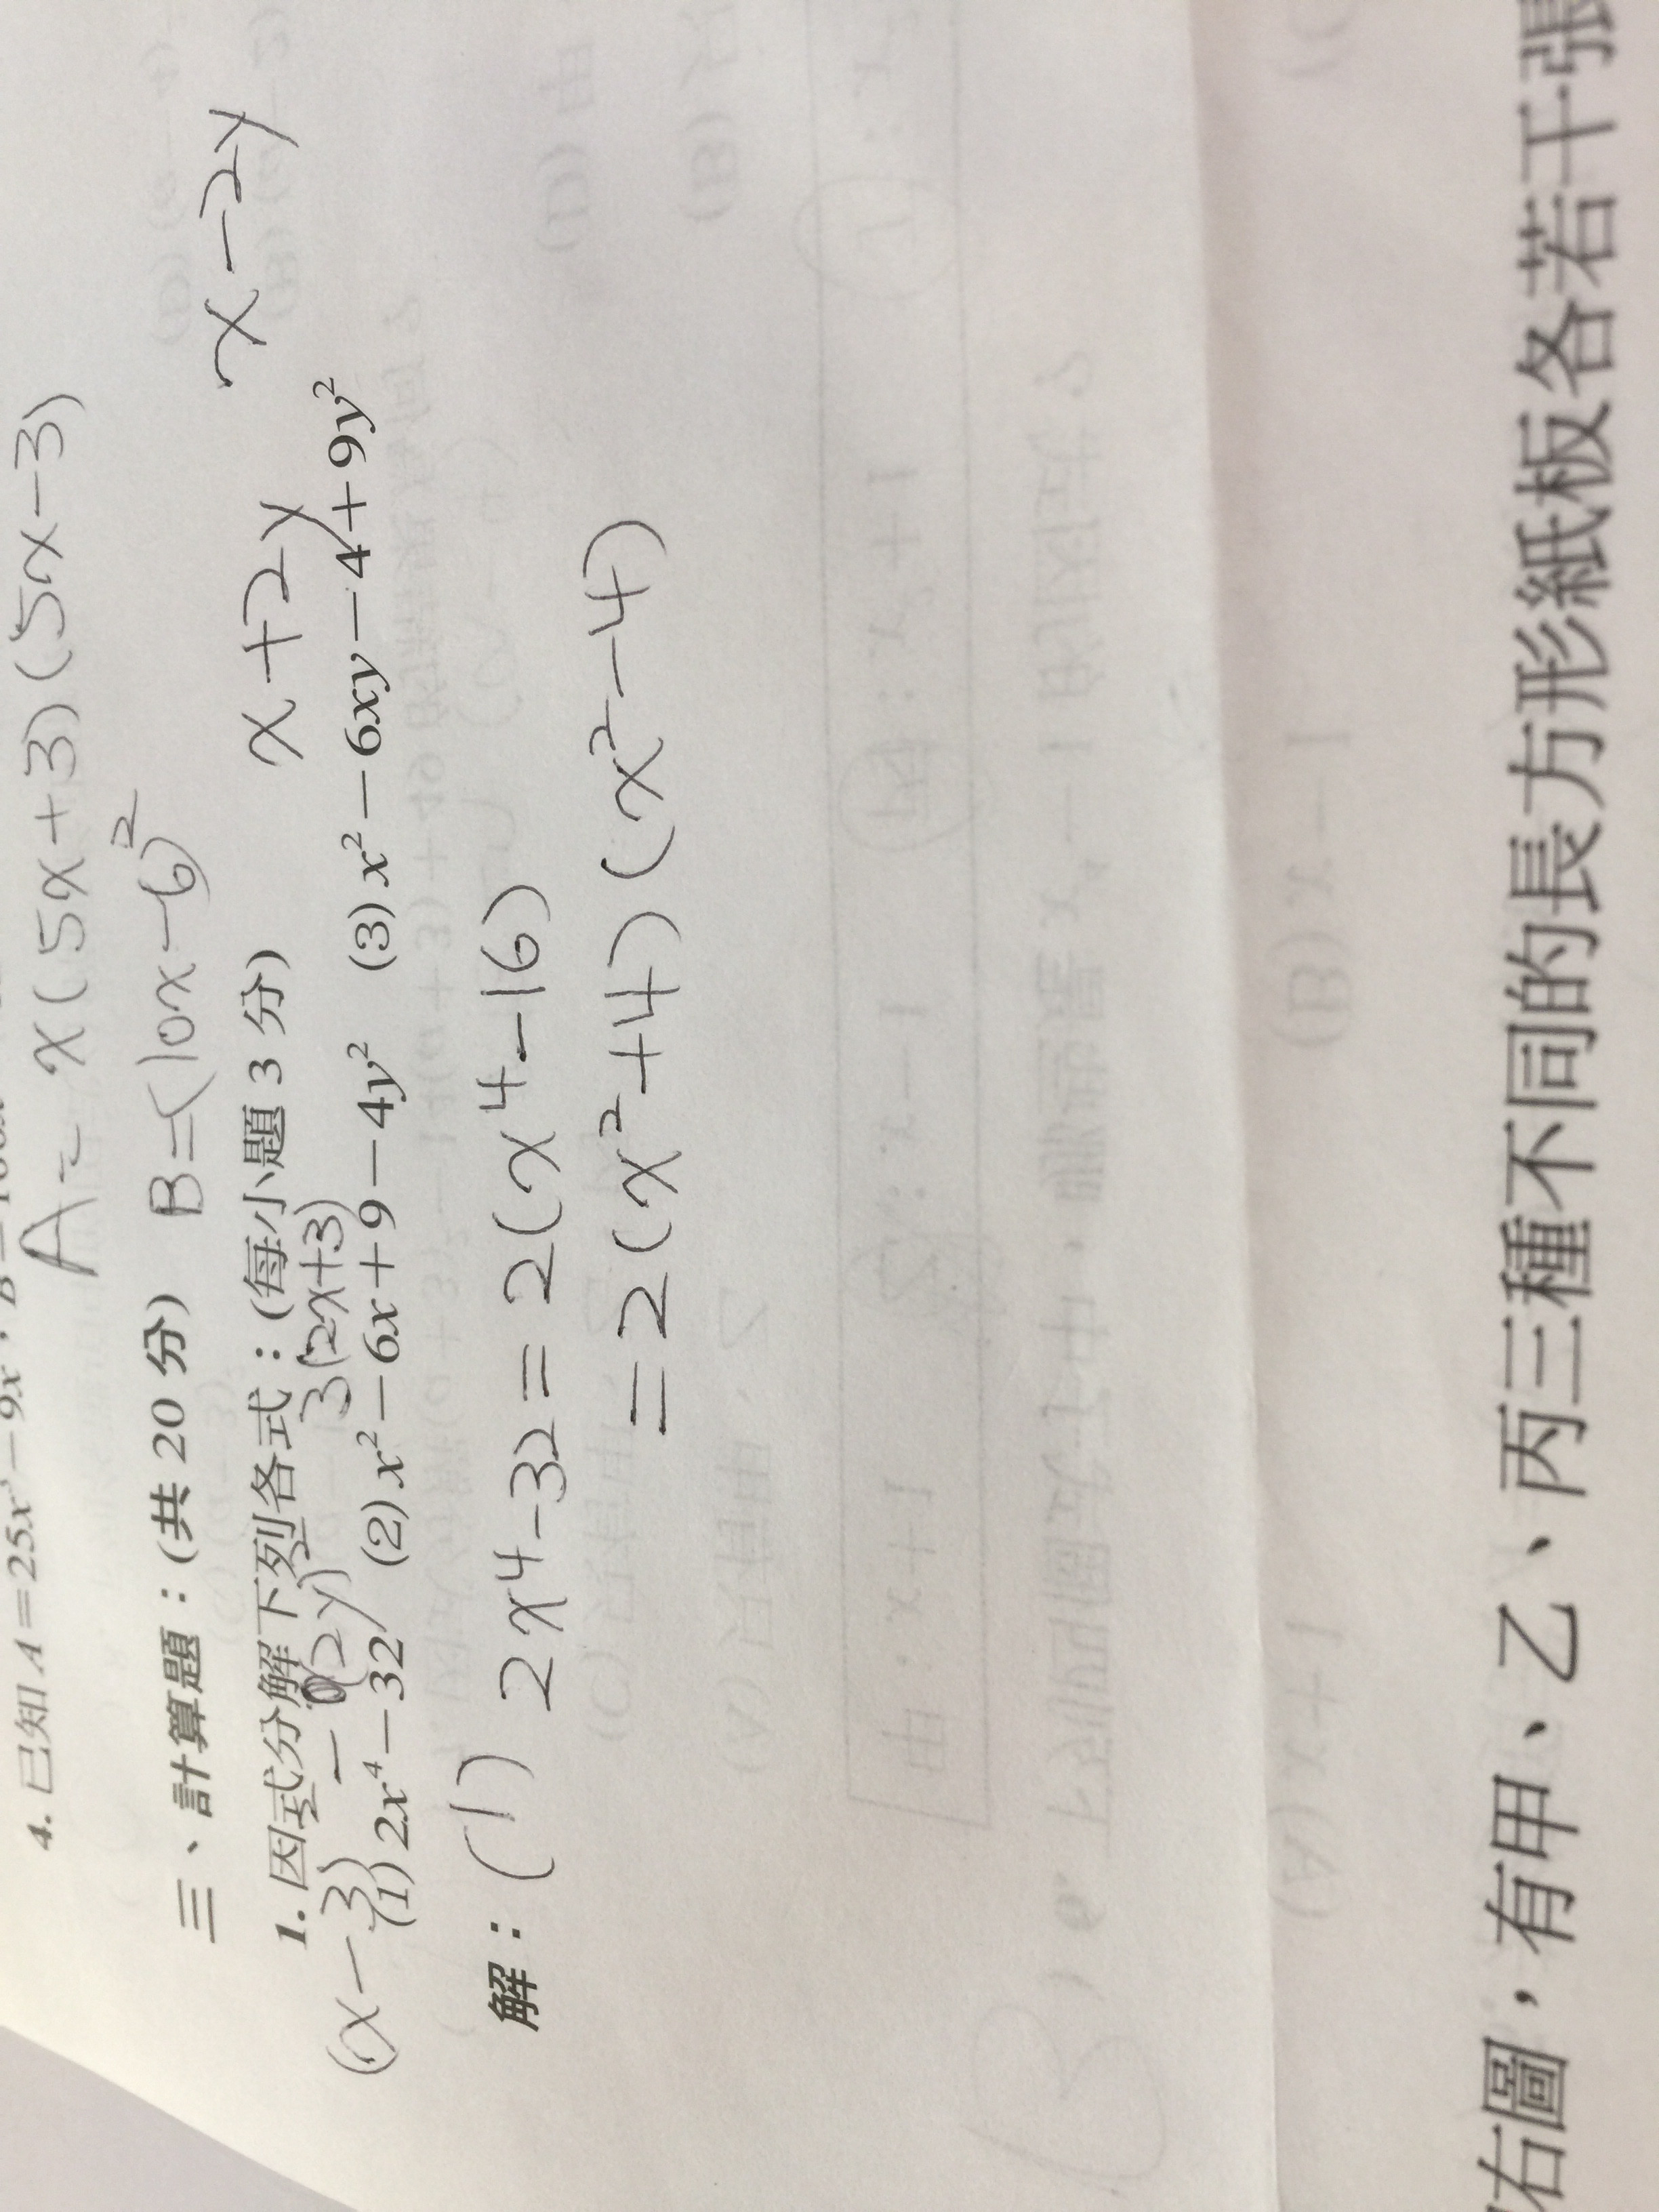 4. 已知 A＝25x³－9x，B＝
A = x(5x+3)(5x-3)
三、計算題：(共 20 分) B=(10x-6)²
1. 因式分解下列各式：(每小題 3 分) x+2y x-2y
(x-3)² - (2y)² 3(2x+3)
(1) 2x⁴－32 (2) x²－6x＋9－4y² (3) x²－6xy－4＋9y²
解：(1) 2x⁴-32=2(x⁴-16)
=2(x²+4)(x²-4)
右圖，有甲、乙、丙三種不同的長方形紙板各若干張